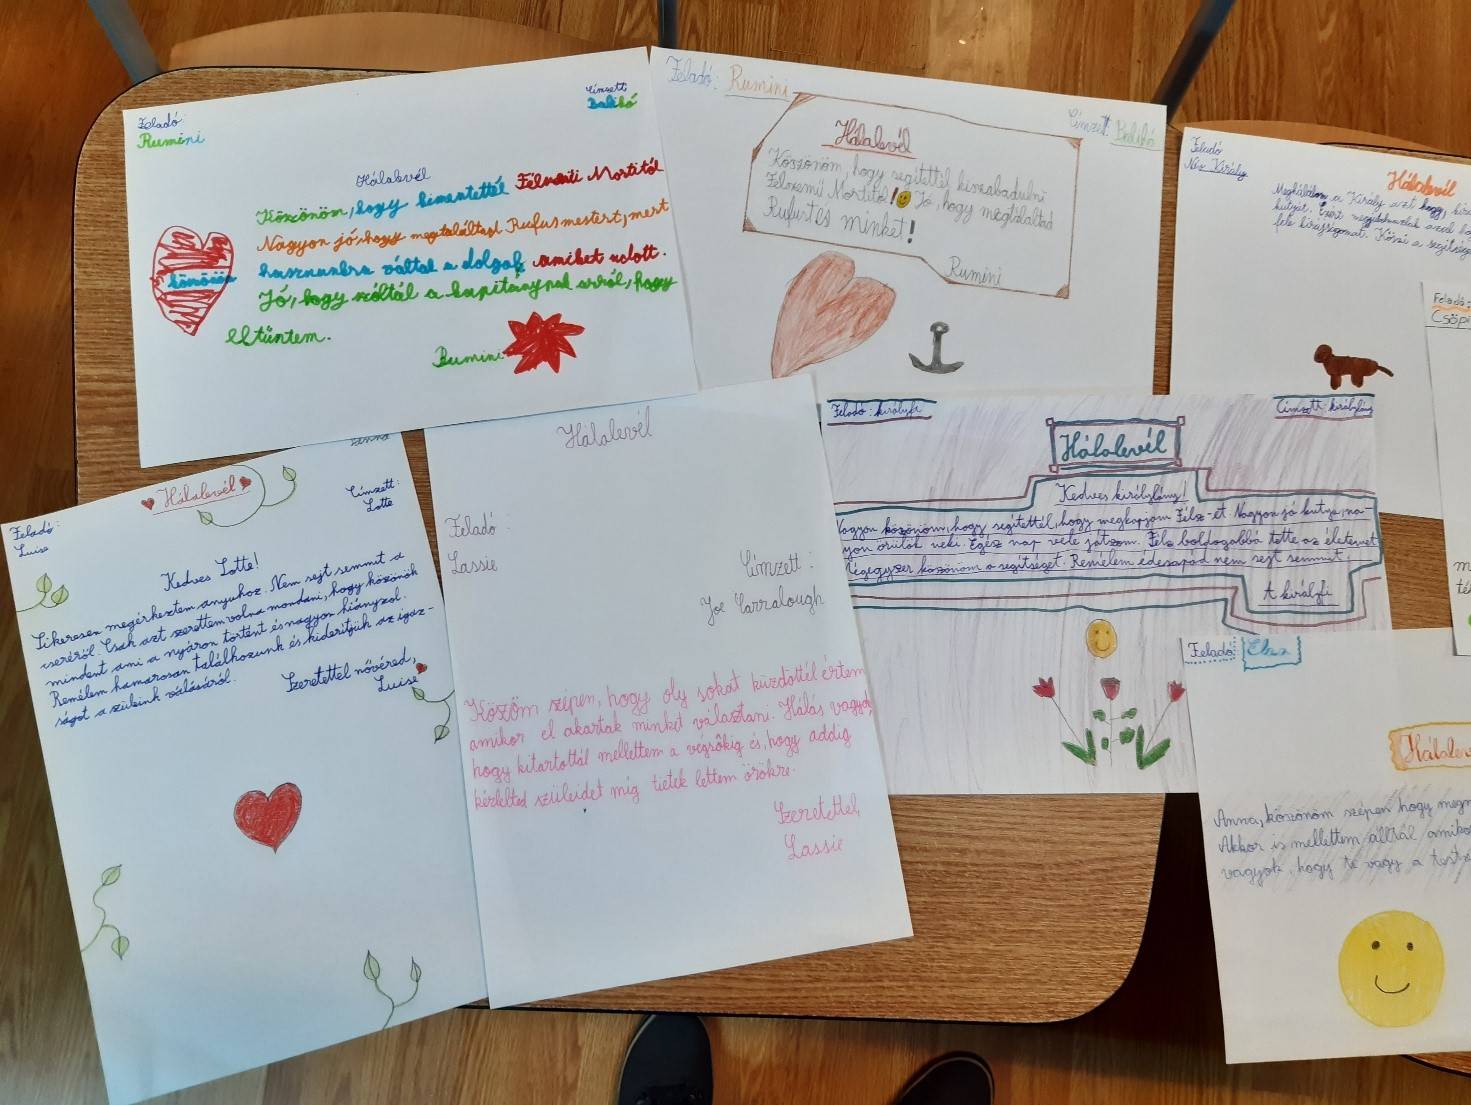 Feladó:
Rumini
Címzett:
Balikó
Hálalevél
Köszönöm, hogy kimentettél Félszemű Mortitól
Nagyon jó, hogy megtaláltad Rufus mestert, mert
hasznunkra váltak a dolgok amiket adott.
Jó, hogy szóltál a kapitánynak arról, hogy
eltűntem.
Rumini
Feladó: Rumini
Címzett: Balikó
Hálalevél
Köszönöm, hogy segítettél kiszabadulni
Félszemű Mortitól! Jó, hogy megtaláltad
Rufust és minket!
Rumini
Feladó
Hálalevél
Meghálálom a Király azt hogy
kutyát. Ezért megjutalmazlak azzal
fele királyságomat. Köszi a
Feladó:
Csöpi
Hálalevél
Feladó:
Luise
Címzett:
Lotte
Kedves Lotte!
Sikeresen megérkeztem anyuhoz. Nem sejt semmit a
cseréről. Csak azt szerettem volna mondani, hogy köszönök
mindent ami a nyáron történt és nagyon hiányzol.
Remélem hamarosan találkozunk és kiderítjük az igaz-
ságot a szüleink válásáról.
Szeretettel nővéred,
Luise
Hálalevél
Feladó:
Lassie
Címzett:
Joe Carralough
Köszöm szépen, hogy oly sokat küzdöttél értem
amikor el akartak minket választani. Hálás vagyok,
hogy kitartottál mellettem a végsőkig és, hogy addig
kérlelted szüleidet míg tietek lettem örökre.
Szeretettel,
Lassie
Feladó: királyfi
Címzett: királylány
Hálalevél
Kedves királylány!
Nagyon köszönöm, hogy segítettél, hogy megkapjam Félsz-et. Nagyon jó kutya, na-
gyon örülök neki. Egész nap vele játszom. Félsz boldogabbá tette az életemet
Mégegyszer köszönöm a segítséget. Remélem édesapád nem sejt semmit.
A királyfi
Feladó: Elza
Anna, köszönöm szépen hogy
Akkor is mellettem álltál
vagyok, hogy te vagy a